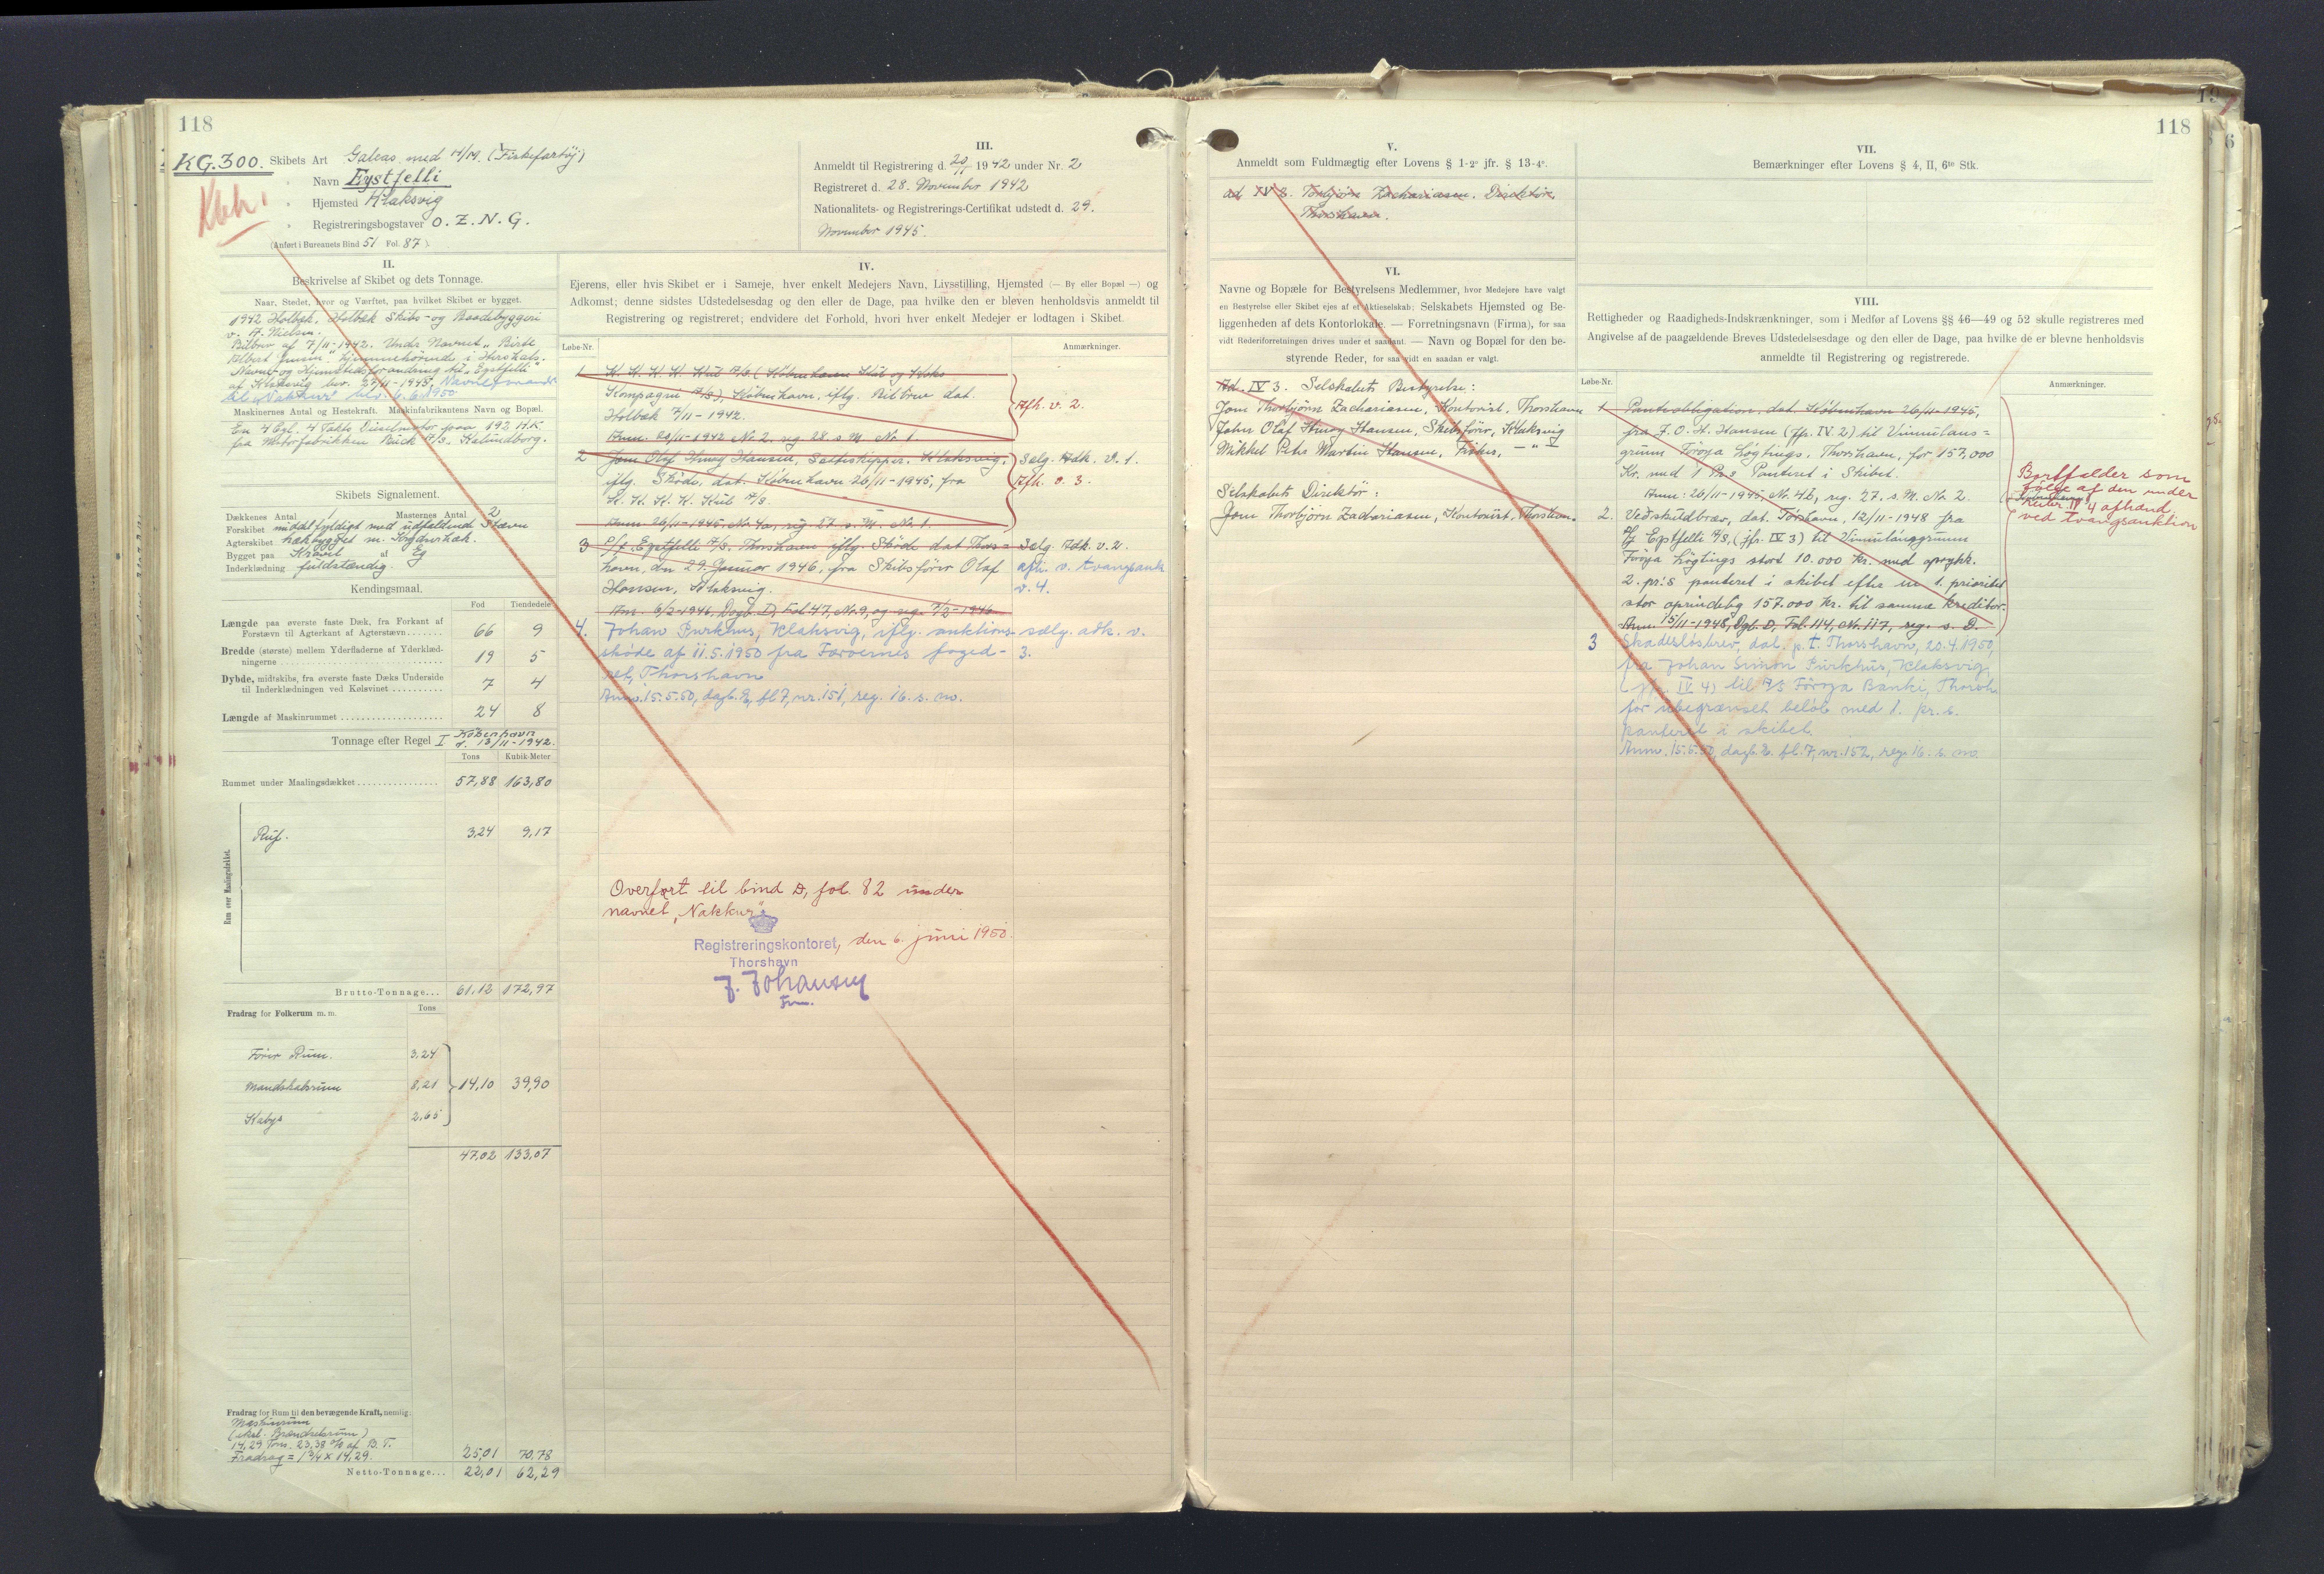 118
KG.300. Skibets Art Galeas med H/M. (Fiskefartøj)
Kbh.
" Navn Eystfelli
" Hjemsted Klaksvig
" Registreringsbogstaver O. Z. N. G.
(Anført i Bureauets Bind 51 Fol. 87)
III.
Anmeldt til Registrering d. 20/11 1942 under Nr. 2
Registreret d. 28. November 1942
Nationalitets- og Registrerings-Certifikat udstedt d. 29.
November 1945.
II.
Beskrivelse af Skibet og dets Tonnage.
Naar, Stedet, hvor og Værftet, paa hvilket Skibet er bygget.
1942 Holbæk. Holbæk Skibs- og Baadebyggeri
v. A. Nielsen.
Bilbrev af 7/11-1942. Under Navnet "Birte
Albert Jensen" hjemmehørende i Hirshals.
Navne- og Hjemstedsforandring til "Eystfelli"
af Klaksvig bev. 27/11-1945.
til "Nakkur" blev. 6.6.1950
Maskinernes Antal og Hestekraft. Maskinfabrikantens Navn og Bopæl.
En 4 Cyl. 4 Takts Dieselmotor paa 192 H.K.
fra Motorfabrikken Buck A/S. Kalundborg.
Skibets Signalement.
Dækkenes Antal 1 Masternes Antal 2
Forskibet middelfyldigt med udfaldende Stævn
Agterskibet hækbygget m. Krydserhæk.
Bygget paa Kravel af Eg
Inderklædning fuldstændig.
Kendingsmaal.
Fod Tiendedele
Længde paa øverste faste Dæk, fra Forkant af
Forstævn til Agterkant af Agterstævn 66 9
Bredde (største) mellem Yderfladerne af Yderklæd-
ningerne 19 5
Dybde, midtskibs, fra øverste faste Dæks Underside
til Inderklædningen ved Kølsvinet 7 4
Længde af Maskinrummet 24 8
Tonnage efter Regel I København
d. 13/11-1942.
Tons Kubik-Meter
Rummet under Maalingsdækket 57,88 163,80
Rum over Maalingsdækket.
Ruf. 3,24 9,17
Brutto-Tonnage... 61,12 172,97
Fradrag for Folkerum m. m. Tons
Fører Rum. 3,24
Mandskabsrum 8,21 14,10 39,90
Kabys 2,65
47,02 133,07
Fradrag for Rum til den bevægende Kraft, nemlig:
Maskinrum
(ekskl. Brændselsrum)
14,29 Tons. 23,38 % af B. T.
Fradrag = 1 3/4 x 14,29. 25,01 70,78
Netto-Tonnage... 22,01 62,29
IV.
Ejerens, eller hvis Skibet er i Sameje, hver enkelt Medejers Navn, Livsstilling, Hjemsted (— By eller Bopæl —) og
Adkomst; denne sidstes Udstedelsesdag og den eller de Dage, paa hvilke den er bleven henholdsvis anmeldt til
Registrering og registreret; endvidere det Forhold, hvori hver enkelt Medejer er lodtagen i Skibet.
Løbe-Nr. Anmærkninger.
1 K. K. K. K. Kul A/S. (Københavns Kul og Koks
Kompagni A/S), København, iflg. Bilbrev dat.
Holbæk 7/11-1942. Afh. v. 2.
Anm. 20/11-1942 No 2, reg 28. s. M. No 1.
2 Jens Olaf Hansen, Klaksvig, Sælg. Adk. v. 1.
iflg. Skøde, dat. København 26/11-1945, fra Afh. v. 3.
K. K. K. K. Kul A/S.
Anm. 26/11-1945. No 4a, reg 27. s. M. No 1.
3 P/f. Eystfelli A/S, Thorshavn iflg. Skøde dat Thors= Sælg. Adk. v. 2.
havn, den 29. Januar 1946, fra Skibsfører Olaf afh. v. tvangsauk
Hansen, Klaksvig. v. 4.
Anm. 6/2-1946, Dagb. D, Fol 47, No. 9, og reg. 7/2-1946
4. Johan Purkhus, Klaksvig, iflg. auktions- sælg. adk. v.
skøde af 11.5.1950 fra Færøernes foged- 3.
ret, Thorshavn
Anm. 15.5.50, dagb. E, fl 7, nr. 151, reg. 16. s. m.
Overført til bind D, fol. 82 under
navnet "Nakkur".
Registreringskontoret, den 6. juni 1950.
Thorshavn
J. Johansen
Fm.
118
V.
Anmeldt som Fuldmægtig efter Lovens § 1-2° jfr. § 13-4°.
ad IV 3. Torbjørn Zachariasen. Direktør,
Thorshavn.
VI.
Navne og Bopæle for Bestyrelsens Medlemmer, hvor Medejere have valgt
en Bestyrelse eller Skibet ejes af et Aktieselskab; Selskabets Hjemsted og Be-
liggenheden af dets Kontorlokale. — Forretningsnavn (Firma), for saa
vidt Rederiforretningen drives under et saadant. — Navn og Bopæl for den be-
styrende Reder, for saa vidt en saadan er valgt.
Ad. IV 3. Selskabets Bestyrelse:
Jens Thorbjørn Zachariasen, Kontorist, Thorshavn
John Olaf Hansen, Skibsfører, Klaksvig
Mikkel Peter Martin Hansen, Fisker, — " —
Selskabets Direktør:
Jens Thorbjørn Zachariasen, Kontorist, Thorshavn.
VII.
Bemærkninger efter Lovens § 4, II, 6te Stk.
VIII.
Rettigheder og Raadigheds-Indskrænkninger, som i Medfør af Lovens §§ 46—49 og 52 skulle registreres med
Angivelse af de paagældende Breves Udstedelsesdage og den eller de Dage, paa hvilke de er blevne henholdsvis
anmeldte til Registrering og registrerede.
Løbe-Nr. Anmærkninger.
1 Panteobligation, dat. København 26/11-1945,
fra J. O. H. Hansen (jfr. IV. 2) til Vinnulans=
grunn Føroya Løgtings, Thorshavn, for 157,000
Kr. med 1. Pr.s Panteret i Skibet.
Anm. 26/11-1945, No. 4b, reg. 27. s. M. No 2.
Bortfalder som
følge af den under
IV 4 afhænd.
ved tvangsauktion
2. Veðskuldbræv, dat. Tórshavn, 12/11-1948 fra
P/f Eystfelli A/S, (jfr. IV 3) til Vinnulánsgrunn
Føroya Løgtings stort 10.000 Kr. med oprykk.
2. pr:s panteret i skibet efter en 1. prioritet
stor oprindelig 157.000 Kr. til samme kreditor.
Anm. 15/11-1948, Dgb. D, Fol. 114, No. 117, reg. s. D.
3 Skadesløsbrev, dat. p. t. Thorshavn, 20.4.1950,
fra Johan Simon Purkhus, Klaksvig,
(jfr. IV 4) til A/S Føroya Banki, Thorsh.
for ubegrænset beløb med 1. pr. s.
panteret i skibet.
Anm. 15.5.50, dagb. E. fl. 7, nr. 152, reg. 16. s. m.